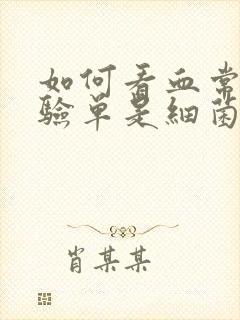 如何看血常
驗單是細菌
肖某某